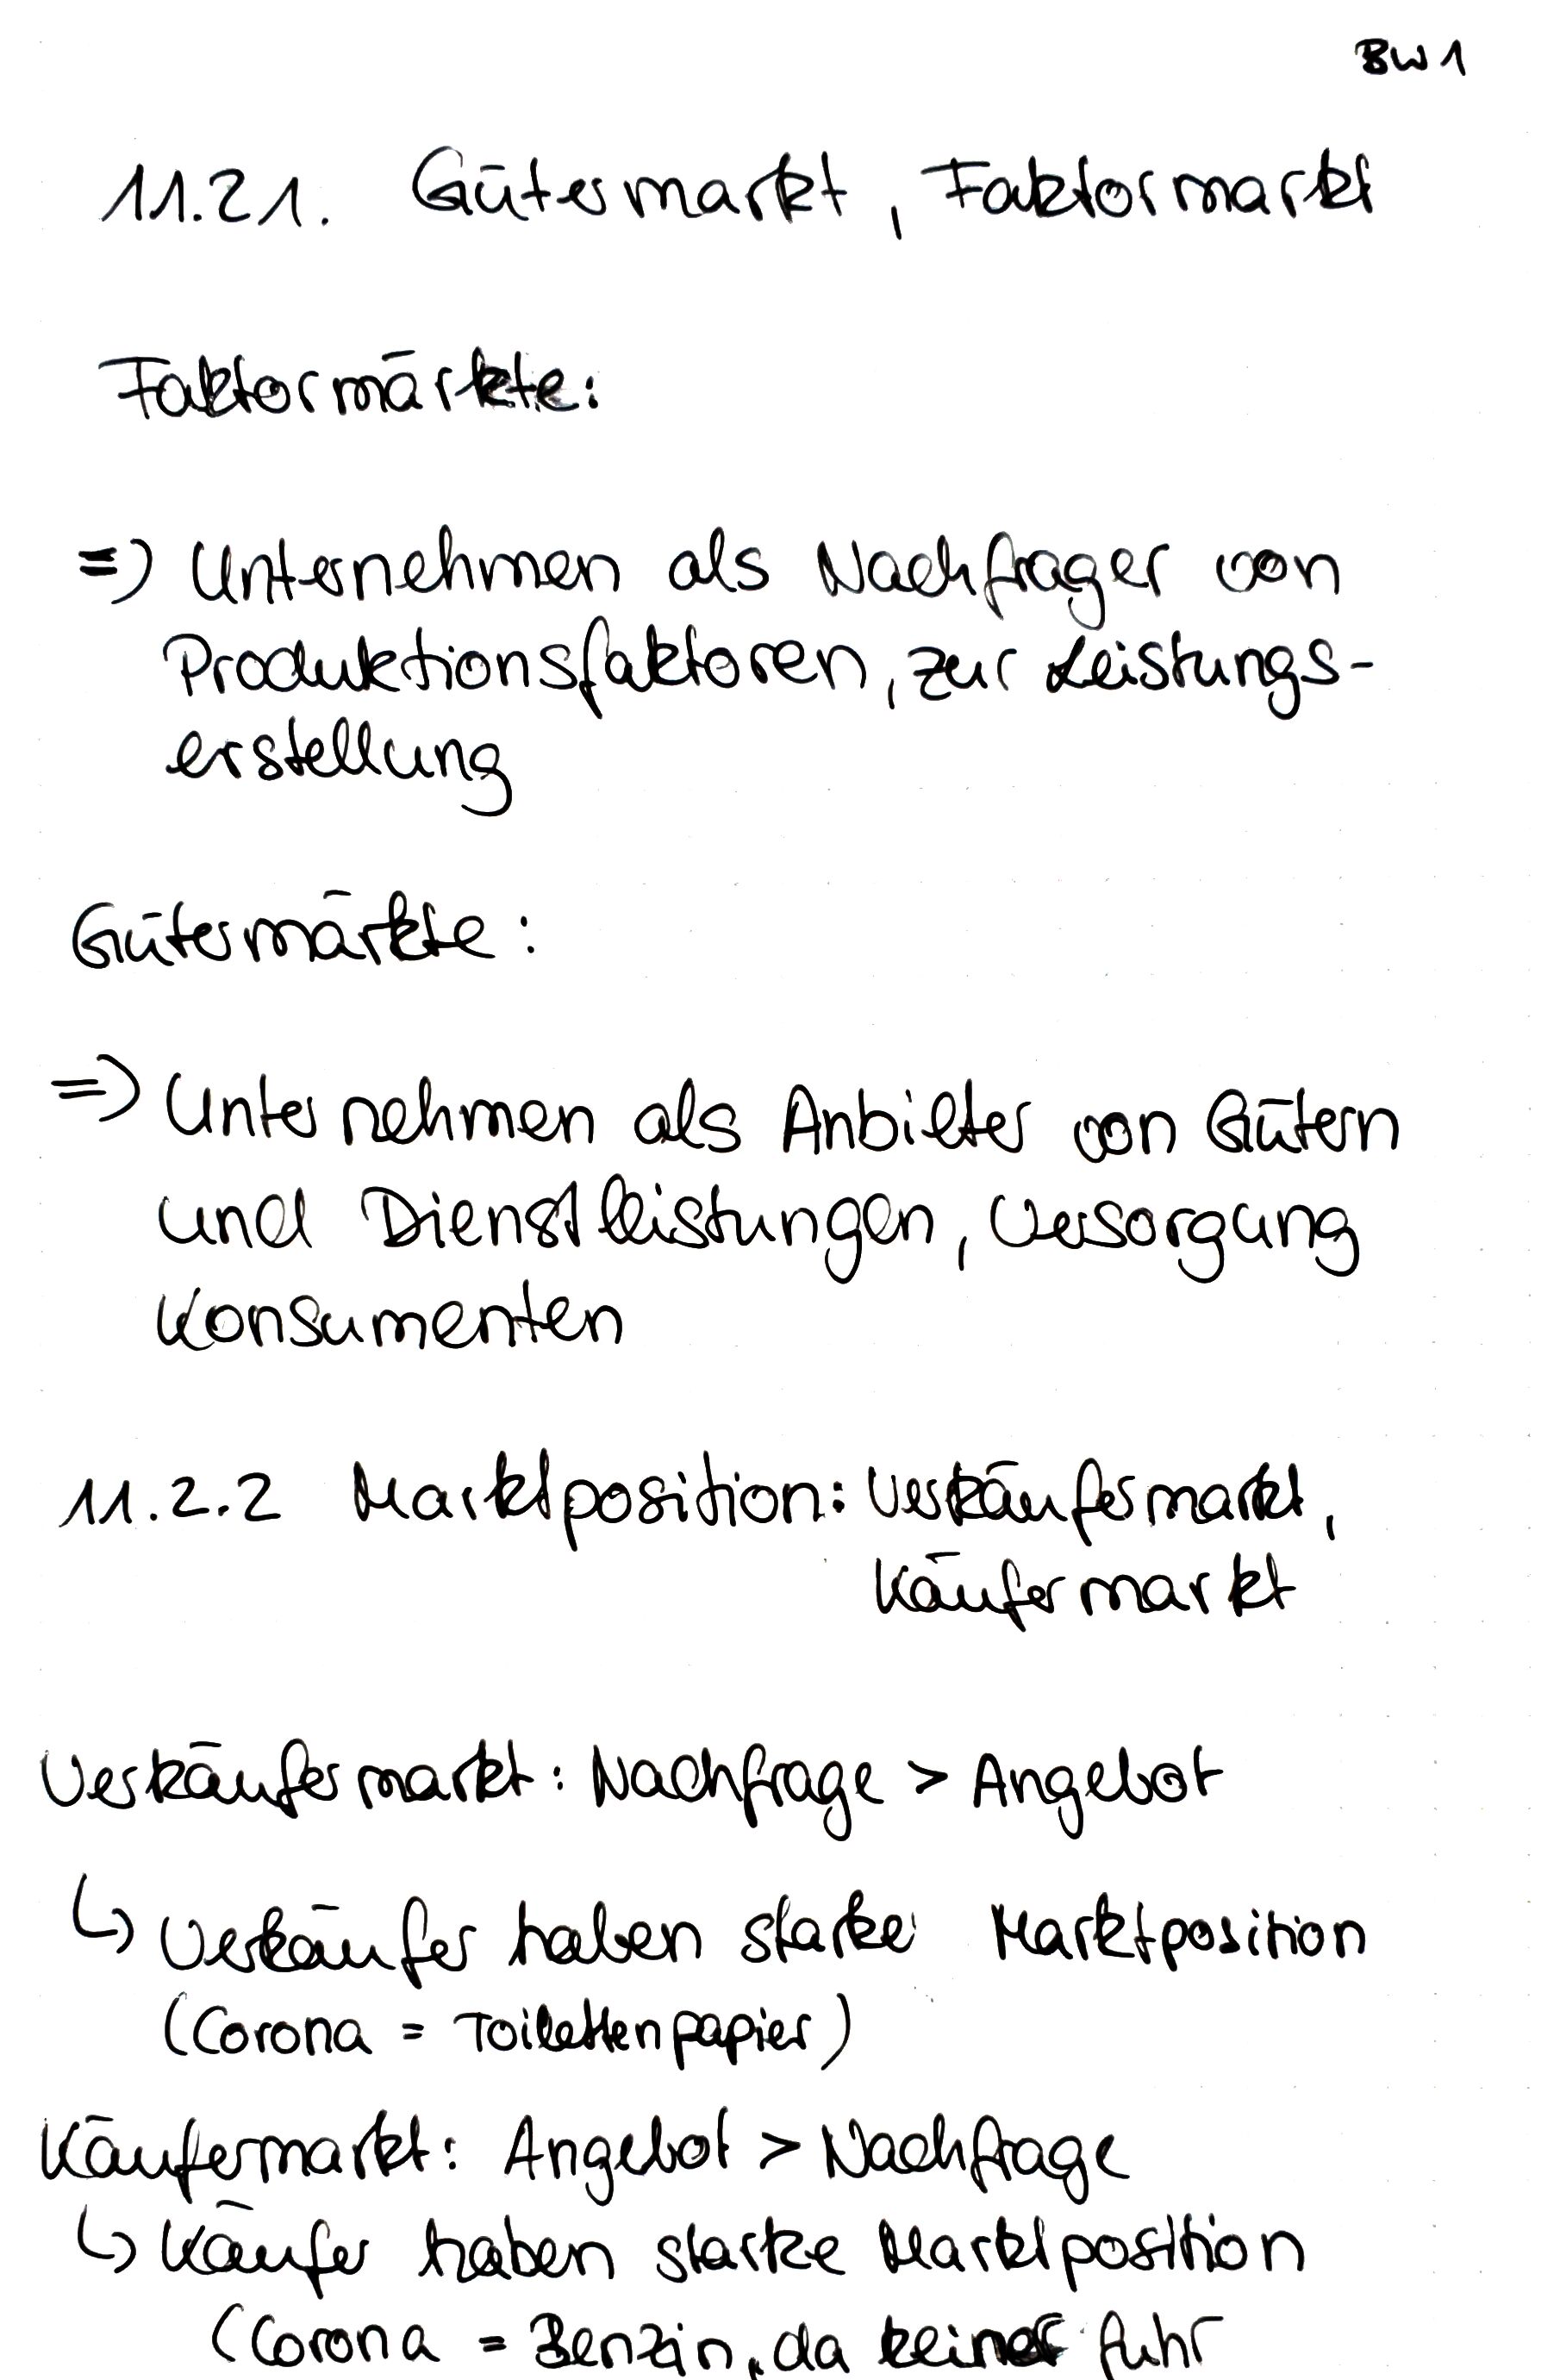 BW1
11.21. Gütermarkt, Faktormarkt
Faktormärkte:
=> Unternehmen als Nachfrager von
Produktionsfaktoren, zur Leistungs-
erstellung
Gütermärkte:
=> Unternehmen als Anbieter von Gütern
und Dienstleistungen, Versorgung
Konsumenten
11.2.2 Marktposition: Verkäufermarkt,
Käufermarkt
Verkäufermarkt: Nachfrage > Angebot
↳ Verkäufer haben starke Marktposition
(Corona = Toilettenpapier)
Käufermarkt: Angebot > Nachfrage
↳ Käufer haben starke Marktposition
(Corona = Benzin, da keiner fuhr